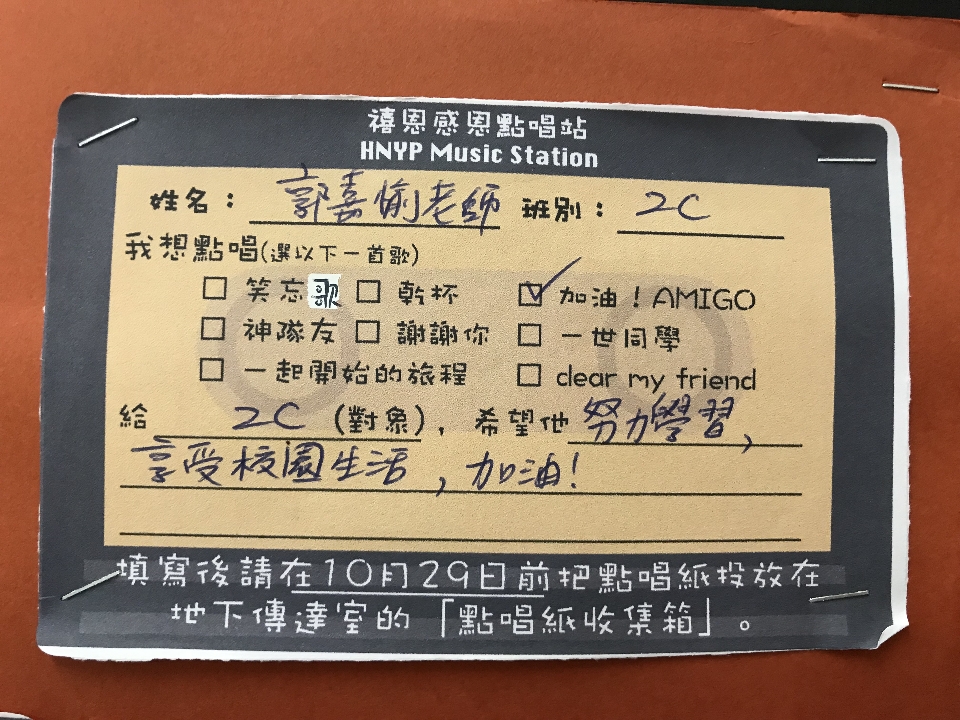 禧恩感恩點唱站
HNYP Music Station
姓名：郭嘉愉老師 班別：2C
我想點唱(選以下一首歌)
☐ 笑忘歌 ☐ 乾杯 ☑ 加油！AMIGO
☐ 神隊友 ☐ 謝謝你 ☐ 一世同學
☐ 一起開始的旅程 ☐ dear my friend
給 2C (對象)，希望他努力學習，
享受校園生活，加油！
填寫後請在10月29日前把點唱紙投放在
地下傳達室的「點唱紙收集箱」。